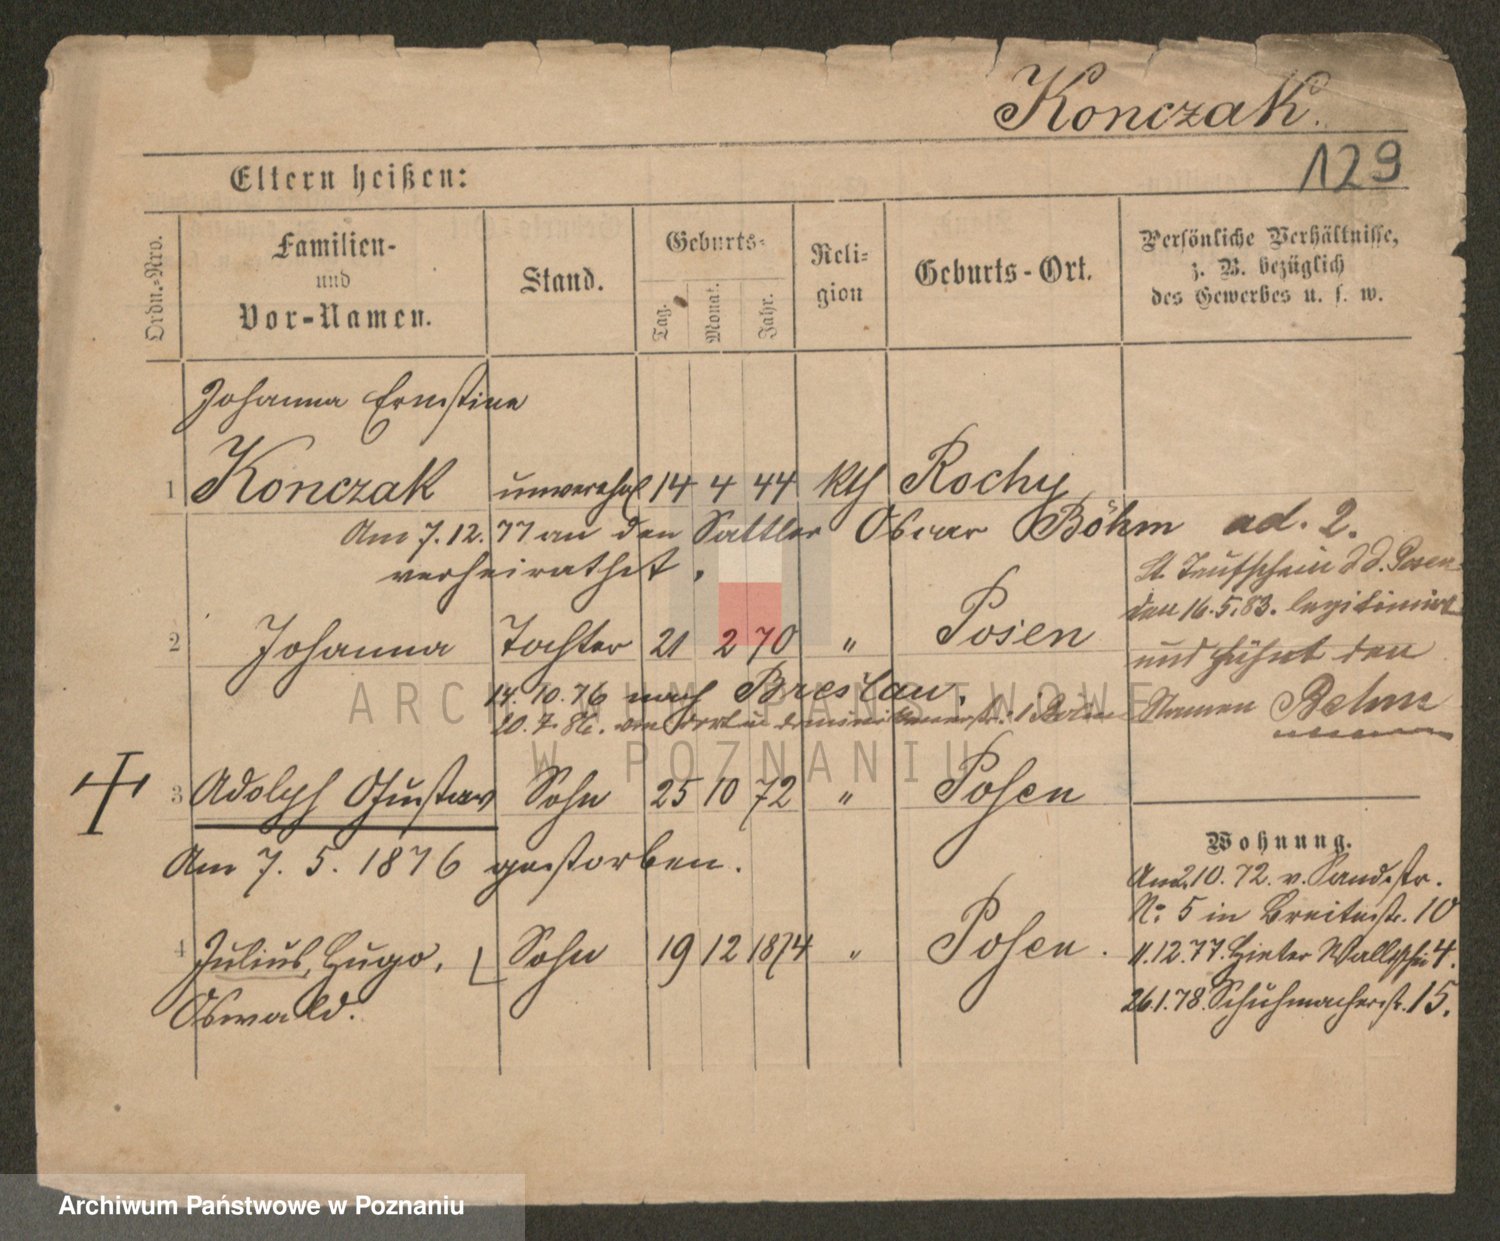 Konczak.
129
Eltern heißen:
Ordn.-Nro.
Familien-
und
Vor-Namen.
Stand.
Geburts-
Tag.
Monat.
Jahr.
Reli-
gion
Geburts-Ort.
Persönliche Verhältnisse,
z. B. bezüglich
des Gewerbes u. s. w.
Johanna Ernstine
1 Konczak unverehel 14 4 44 kth Rochy
Am 7.12.77 an den Sattler Oscar Böhm
verheirathet.
ad. 2.
lt. Taufschein d.d. Posen
den 16.5.83. legitimirt
und führt den
Namen Behm
2 Johanna Tochter 21 2 70 " Posen
14.10.76 nach Breslau.
20.7.86. von dort
3 Adolph Gustav Sohn 25 10 72 " Posen
Am 7. 5. 1876 gestorben.
4 Julius, Hugo, Sohn 19 12 1874 " Posen.
Oswald.
Wohnung.
Am 2.10.72. v. Sandstr.
No. 5 in Breitestr. 10
11.12.77. Hinter Wallischei 4.
26.1.78. Schuhmacherstr. 15.
ARCHIWUM PAŃSTWOWE
W POZNANIU
Archiwum Państwowe w Poznaniu